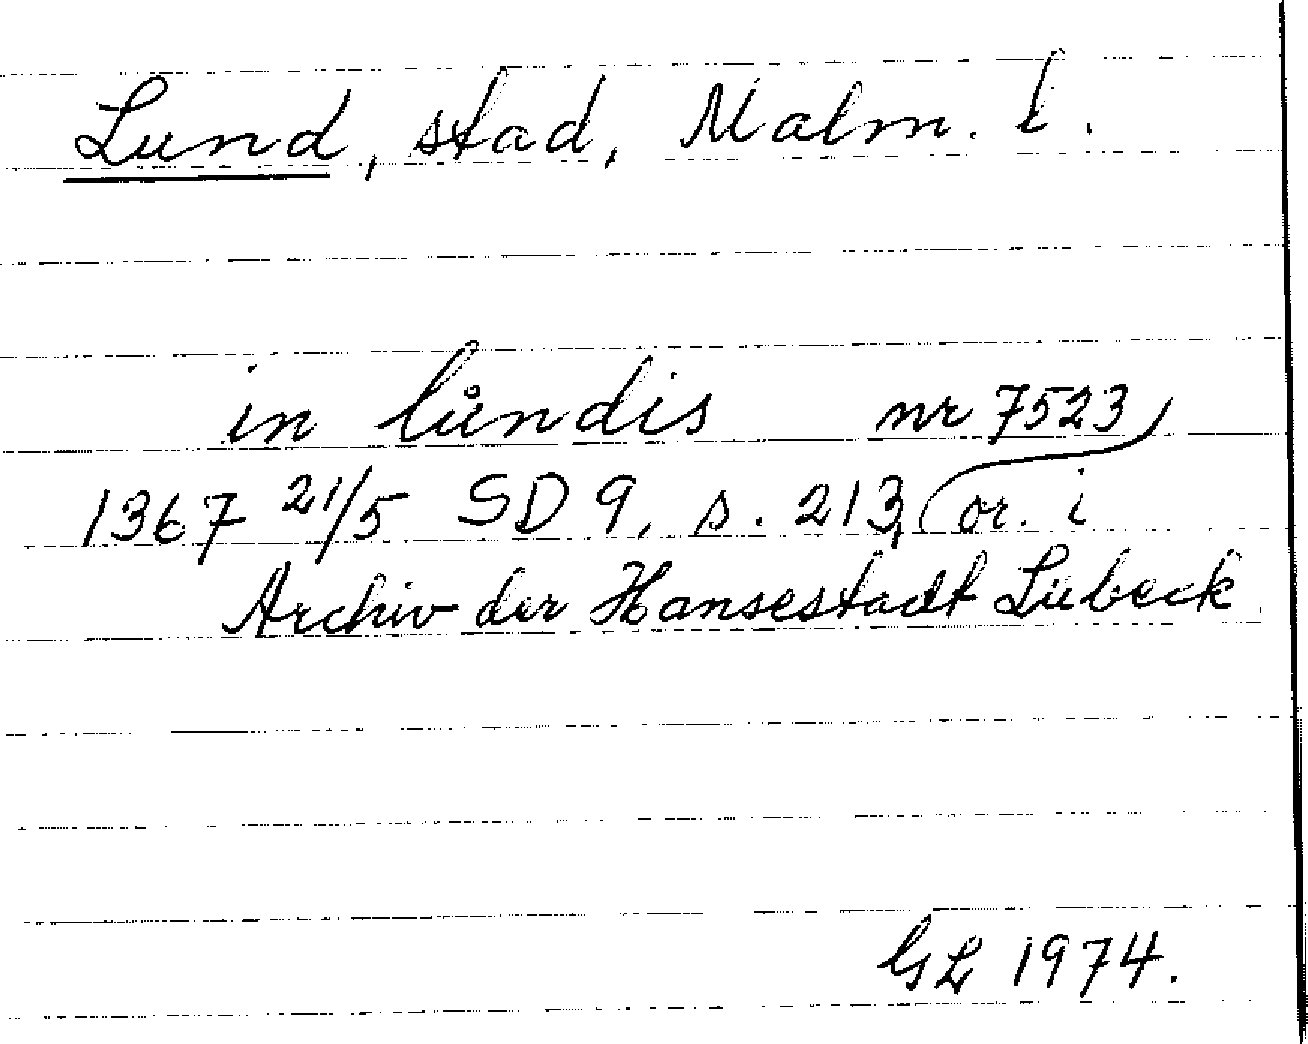 Lund, stad, Malm. l.
in lůndis nr 7523
1367 21/5 SD 9, s. 213, or. i
Archiv der Hansestadt Lübeck
GL 1974.